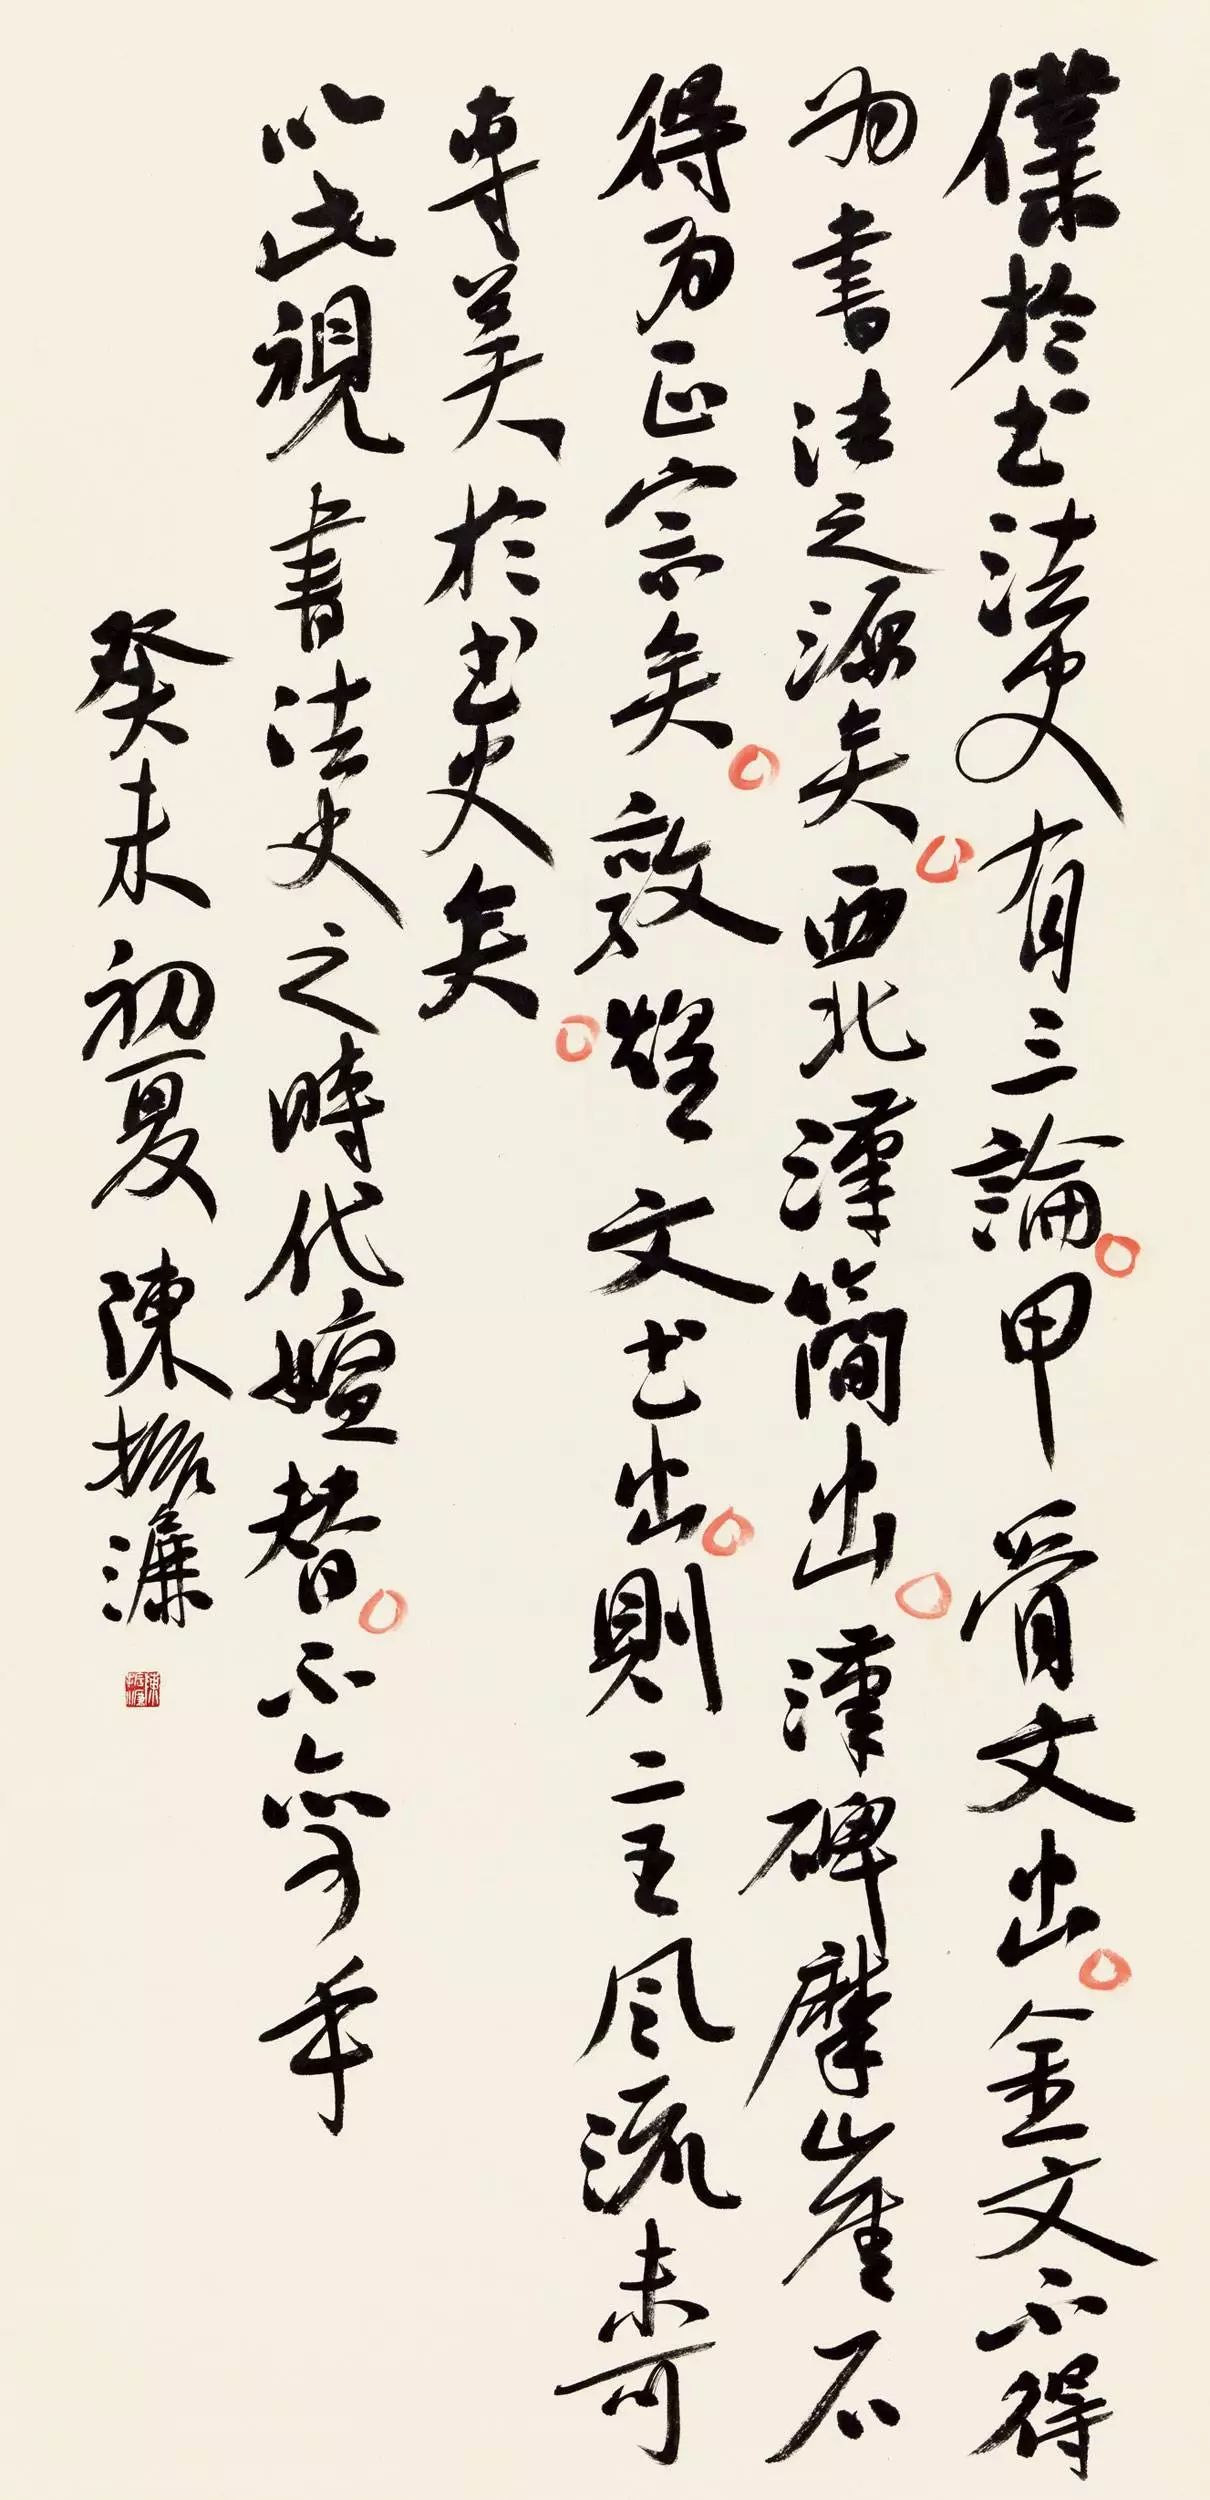 僕於書法史有三論甲骨文出金文不得
为書法之源矣西北漢簡出漢碑摩崖不
得为正宗矣敦煌文书出則二王风流未可
専美於书史矣
以此視書法史之時代嬗替不亦可乎
癸未初夏陳振濂